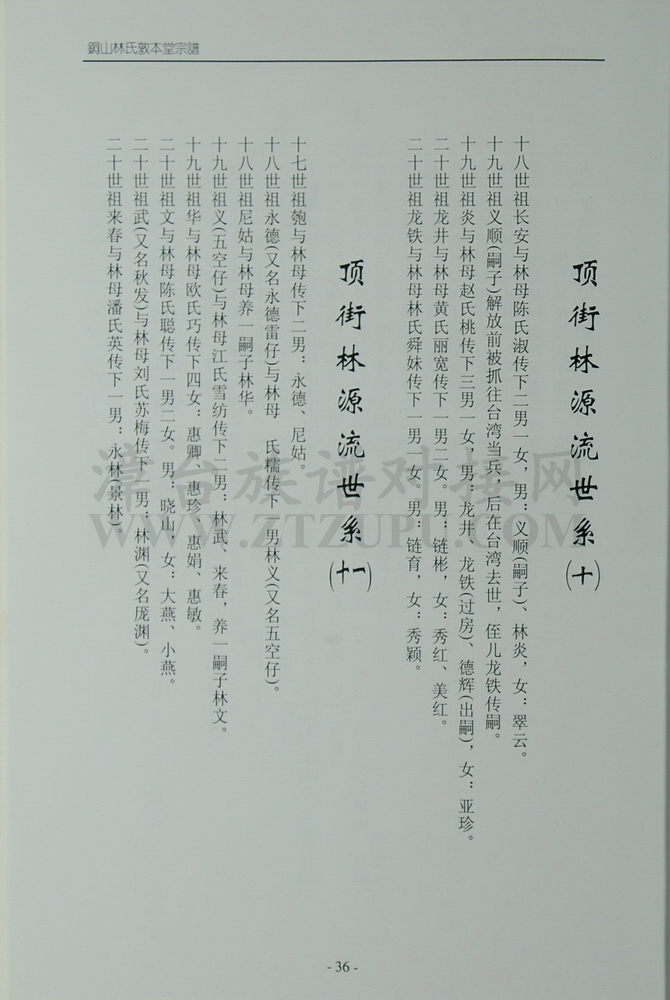 銅山林氏敦本堂宗譜
顶街林源流世系(十)
十八世祖长安与林母陈氏淑传下二男一女，男：义顺(嗣子)、林炎，女：翠云。
十九世祖义顺(嗣子)解放前被抓往台湾当兵，后在台湾去世，侄儿龙铁传嗣。
十九世祖炎与林母赵氏桃传下三男一女，男：龙井、龙铁(过房)、德辉(出嗣)，女：亚珍。
二十世祖龙井与林母黄氏丽宽传下一男二女。男：链彬，女：秀红、美红。
二十世祖龙铁与林母林氏舜妹传下一男一女。男：链育，女：秀颖。
顶街林源流世系(十一)
十七世祖匏与林母传下二男：永德、尼姑。
十八世祖永德(又名永德雷仔)与林母 氏糯传下一男林义(又名五空仔)。
十八世祖尼姑与林母养一嗣子林华。
十九世祖义(五空仔)与林母江氏雪纺传下二男：林武、来春，养一嗣子林文。
十九世祖华与林母欧氏巧传下四女：惠卿、惠珍、惠娟、惠敏。
二十世祖文与林母陈氏聪传下一男二女。男：晓山，女：大燕、小燕。
二十世祖武(又名秋发)与林母刘氏苏梅传下一男：林渊(又名厐渊)。
二十世祖来春与林母潘氏英传下一男：永林(景林)
漳台族谱对接网
WWW.ZTZUPU.COM
- 36 -